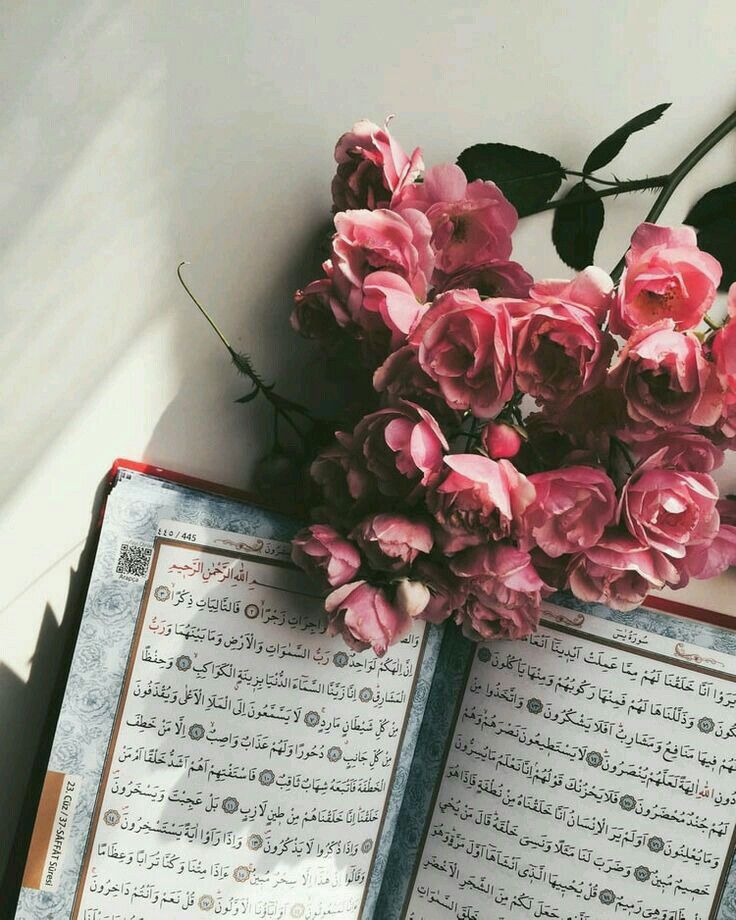 سُورَةُ يٰسٓ
يَرَوْا اَنَّا خَلَقْنَا لَهُمْ مِمَّا عَمِلَتْ اَيْدِينَا اَنْعَامًا
وَذَلَّلْنَاهَا لَهُمْ فَمِنْهَا رَكُوبُهُمْ وَمِنْهَا يَأْكُلُونَ
لَهُمْ فِيهَا مَنَافِعُ وَمَشَارِبُ اَفَلَا يَشْكُرُونَ وَاتَّخَذُوا مِنْ
دُونِ اللّٰهِ اٰلِهَةً لَعَلَّهُمْ يُنْصَرُونَ لَا يَسْتَطِيعُونَ نَصْرَهُمْ وَهُمْ
لَهُمْ جُنْدٌ مُحْضَرُونَ فَلَا يَحْزُنْكَ قَوْلُهُمْ اِنَّا نَعْلَمُ مَا يُسِرُّونَ
وَمَا يُعْلِنُونَ اَوَلَمْ يَرَ الْاِنْسَانُ اَنَّا خَلَقْنَاهُ مِنْ نُطْفَةٍ فَاِذَا هُوَ
خَصِيمٌ مُبِينٌ وَضَرَبَ لَنَا مَثَلًا وَنَسِيَ خَلْقَهُ قَالَ مَنْ يُحْيِي
وَهِيَ رَمِيمٌ قُلْ يُحْيِيهَا الَّذِى اَنْشَاَهَا اَوَّلَ مَرَّةٍ وَهُوَ
جَعَلَ لَكُمْ مِنَ الشَّجَرِ الْاَخْضَرِ
السَّمٰوَاتِ
٤٤٥ / 445
Arapça
بِسْمِ اللّٰهِ الرَّحْمٰنِ الرَّحِيمِ
فَالزَّاجِرَاتِ زَجْرًا فَالتَّالِيَاتِ ذِكْرًا
اِنَّ اِلٰهَكُمْ لَوَاحِدٌ رَبُّ السَّمٰوَاتِ وَالْاَرْضِ وَمَا بَيْنَهُمَا وَرَبُّ
الْمَشَارِقِ اِنَّا زَيَّنَّا السَّمَاءَ الدُّنْيَا بِزِينَةٍ الْكَوَاكِبِ وَحِفْظًا
مِنْ كُلِّ شَيْطَانٍ مَارِدٍ لَا يَسَّمَّعُونَ اِلَى الْمَلَاِ الْاَعْلٰى وَيُقْذَفُونَ
مِنْ كُلِّ جَانِبٍ دُحُورًا وَلَهُمْ عَذَابٌ وَاصِبٌ اِلَّا مَنْ خَطِفَ
الْخَطْفَةَ فَاَتْبَعَهُ شِهَابٌ ثَاقِبٌ فَاسْتَفْتِهِمْ اَهُمْ اَشَدُّ خَلْقًا اَمْ مَنْ
خَلَقْنَا اِنَّا خَلَقْنَاهُمْ مِنْ طِينٍ لَازِبٍ بَلْ عَجِبْتَ وَيَسْخَرُونَ
وَاِذَا ذُكِّرُوا لَا يَذْكُرُونَ وَاِذَا رَاَوْا اٰيَةً يَسْتَسْخِرُونَ
وَقَالُوا اِنْ هٰذَا اِلَّا سِحْرٌ مُبِينٌ ءَاِذَا مِتْنَا وَكُنَّا تُرَابًا وَعِظَامًا
لَمَبْعُوثُونَ اَوَاٰبَاؤُنَا الْاَوَّلُونَ قُلْ نَعَمْ وَاَنْتُمْ دَاخِرُونَ
23. CÜZ / 37-SÂFFÂT Sûresi